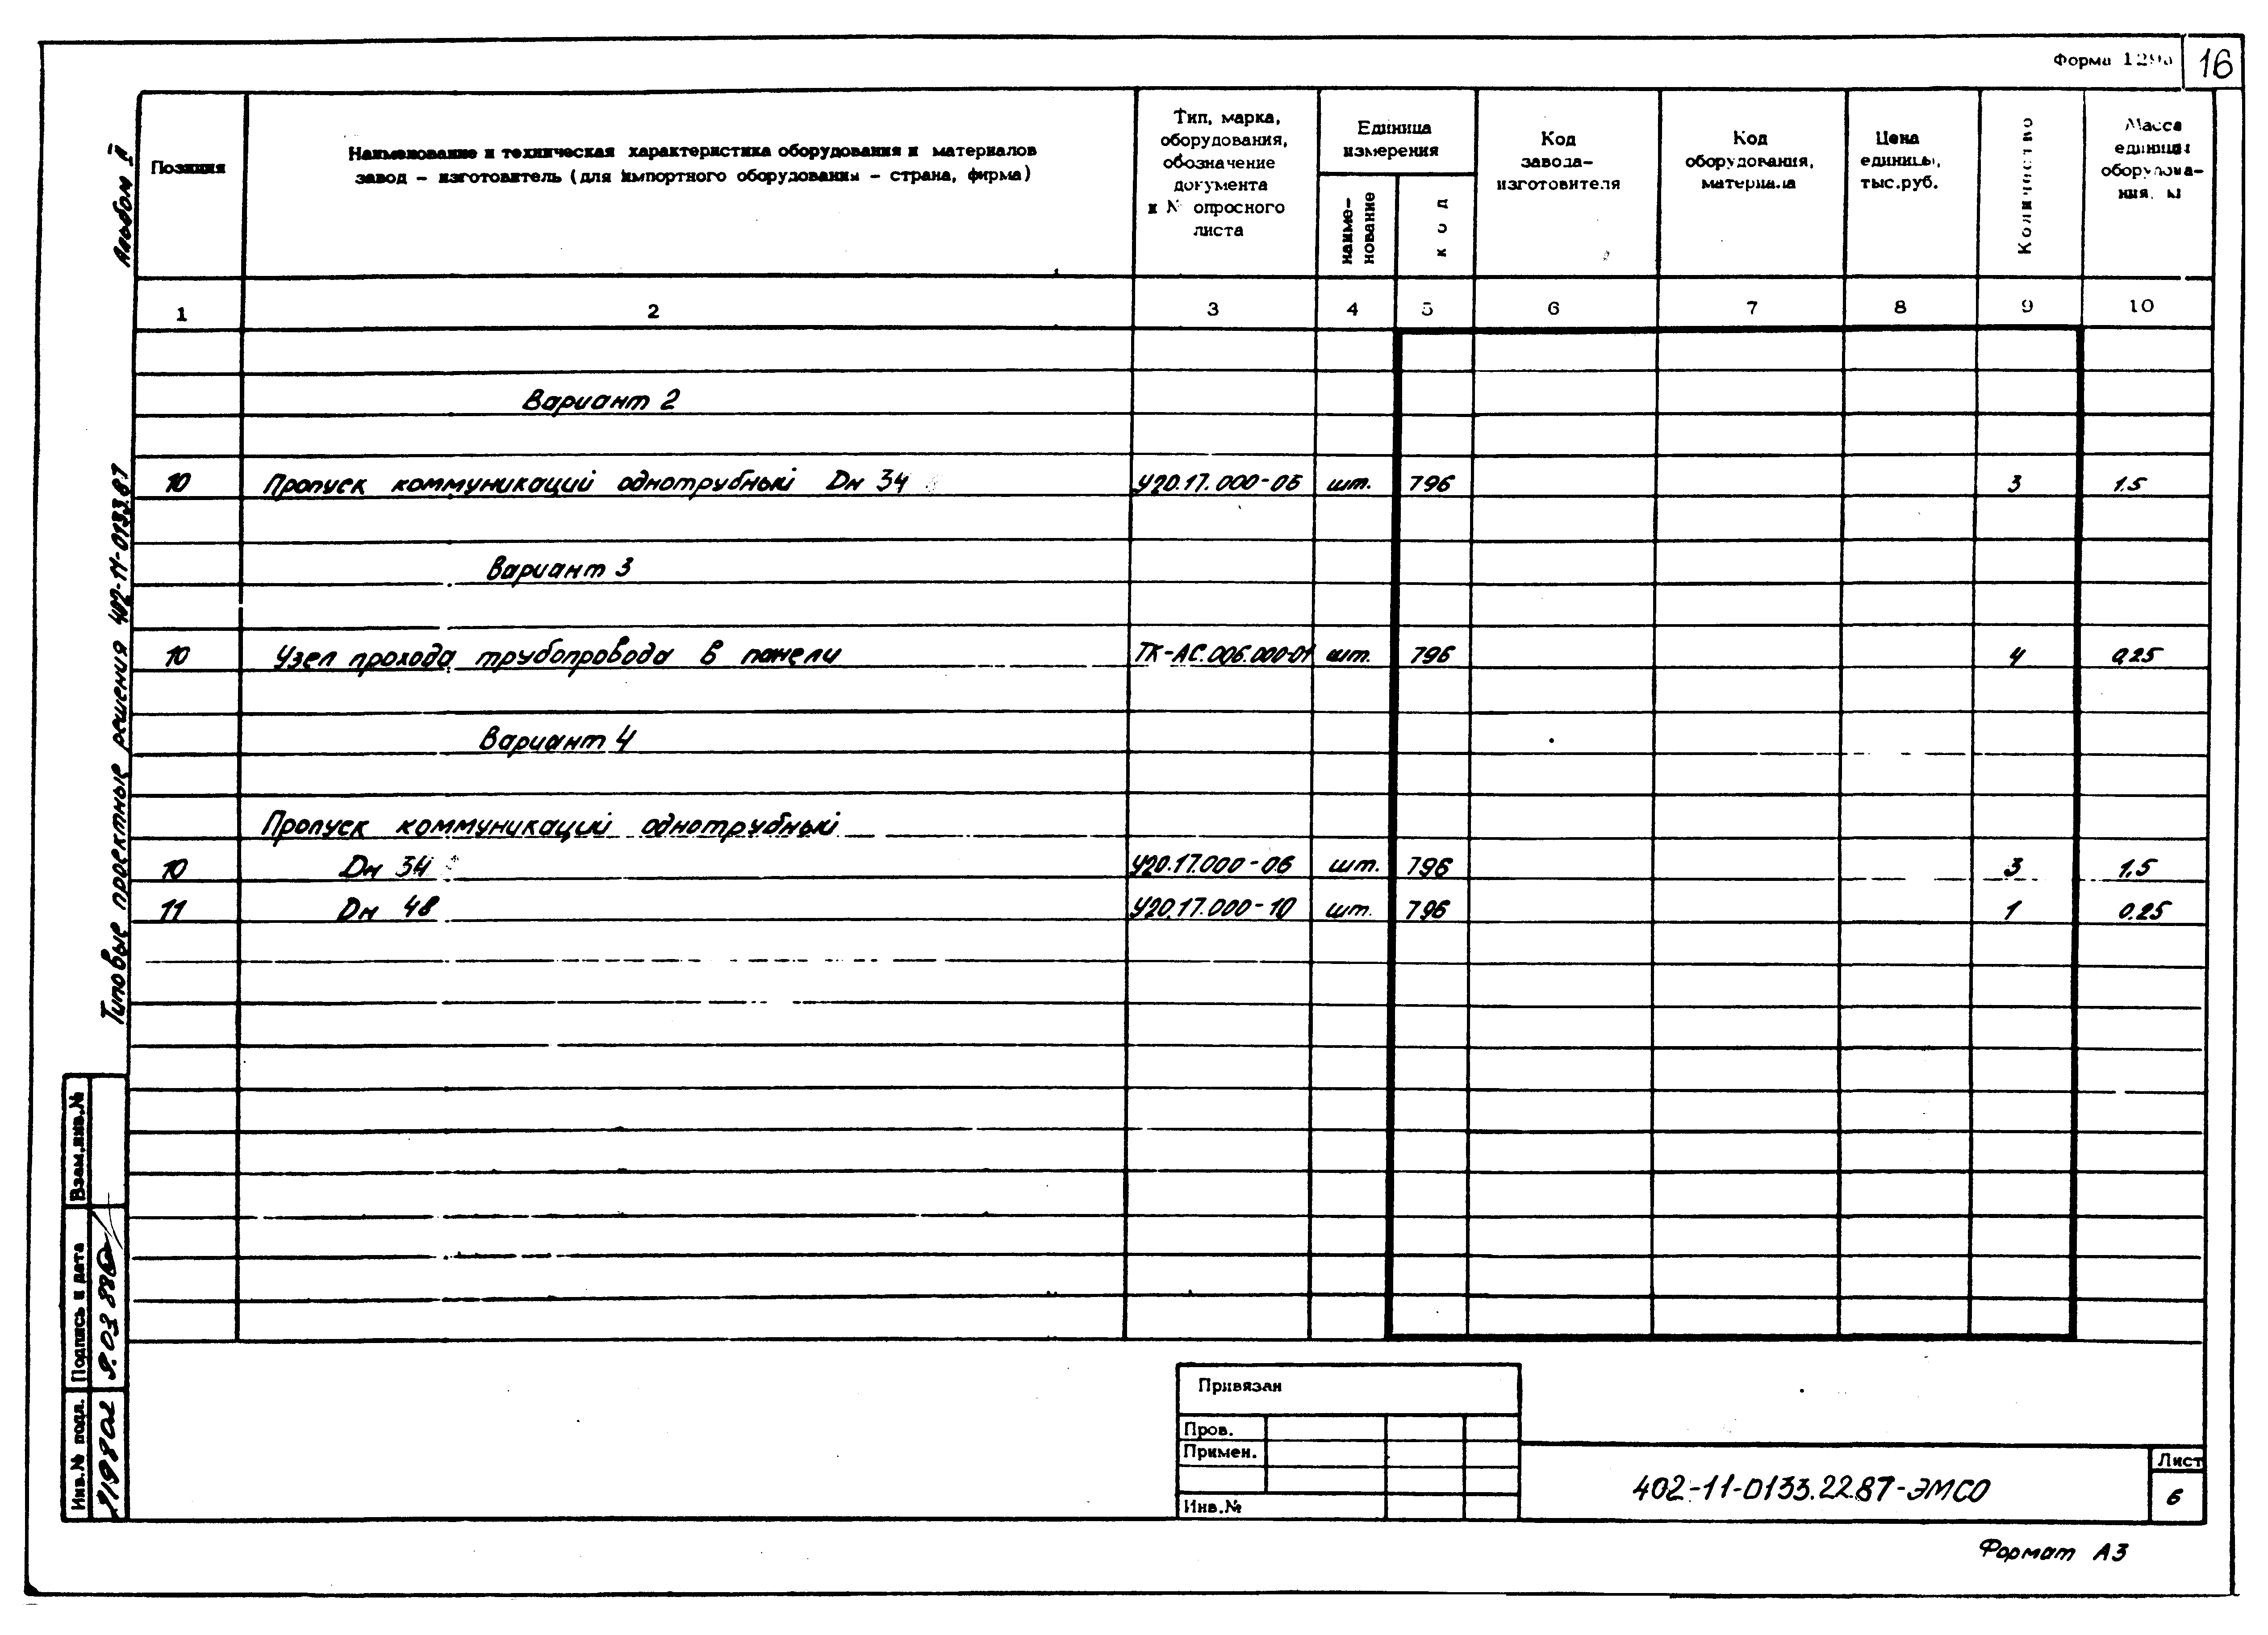 Форма 129а
16
Позиция
Наименование и техническая характеристика оборудования и материалов
завод - изготовитель (для импортного оборудования - страна, фирма)
Тип, марка,
оборудования,
обозначение
документа
и № опросного
листа
Единица
измерения
наиме-
нование
код
Код
завода-
изготовителя
Код
оборудования,
материала
Цена
единицы,
тыс.руб.
Количество
Масса
единицы
оборудова-
ния, кг
1 2 3 4 5 6 7 8 9 10
Вариант 2
10 Пропуск коммуникаций однотрубный Dн 34 У20.17.000-06 шт. 796 3 1.5
Вариант 3
10 Узел прохода трубопровода в панели ТК-АС.006.000-01 шт. 796 4 0,25
Вариант 4
Пропуск коммуникаций однотрубный
10 Dн 34 У20.17.000-06 шт. 796 3 1,5
11 Dн 48 У20.17.000-10 шт. 796 1 0.25
Альбом
Типовые проектные решения 402-11-0133.87
Взам.инв.№
Подпись и дата
9.03 88
Инв.№ подл.
Привязан
Пров.
Примен.
Инв.№
402-11-0133.22.87-ЭМСО
Лист
6
Формат А3